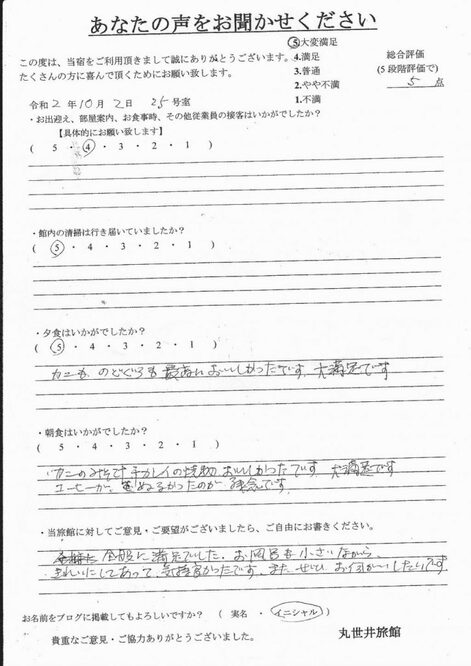 あなたの声をお聞かせください
この度は、当宿をご利用頂きまして誠にありがとうございます。
たくさんの方に喜んで頂くためにお願い致します。
5 大変満足
4.満足
3.普通
2.やや不満
1.不満
総合評価
(5段階評価で)
5 点
令和 2 年 10 月 2 日 25 号室
・お出迎え、部屋案内、お食事時、その他従業員の接客はいかがでしたか?
【具体的にお願い致します】
( 5 ・ 4 ・ 3 ・ 2 ・ 1 )
・館内の清掃は行き届いていましたか?
( 5 ・ 4 ・ 3 ・ 2 ・ 1 )
・夕食はいかがでしたか?
( 5 ・ 4 ・ 3 ・ 2 ・ 1 )
カニも のどぐろも 最高に おいしかったです 大満足です
・朝食はいかがでしたか?
( 5 ・ 4 ・ 3 ・ 2 ・ 1 )
カニのみそ汁 カレイの焼物 おいしかったです 大満足です
コーヒーが、ぬるかったのが 残念です
・当旅館に対してご意見・ご要望がございましたら、ご自由にお書きください。
全般に満足でした。お風呂も小さいながら、
きれいにしてあって、気持良かったです。また、ぜひ お伺いしたいです
お名前をブログに掲載してもよろしいですか? ( 実名 ・ イニシャル )
貴重なご意見・ご協力ありがとうございました。
丸世井旅館